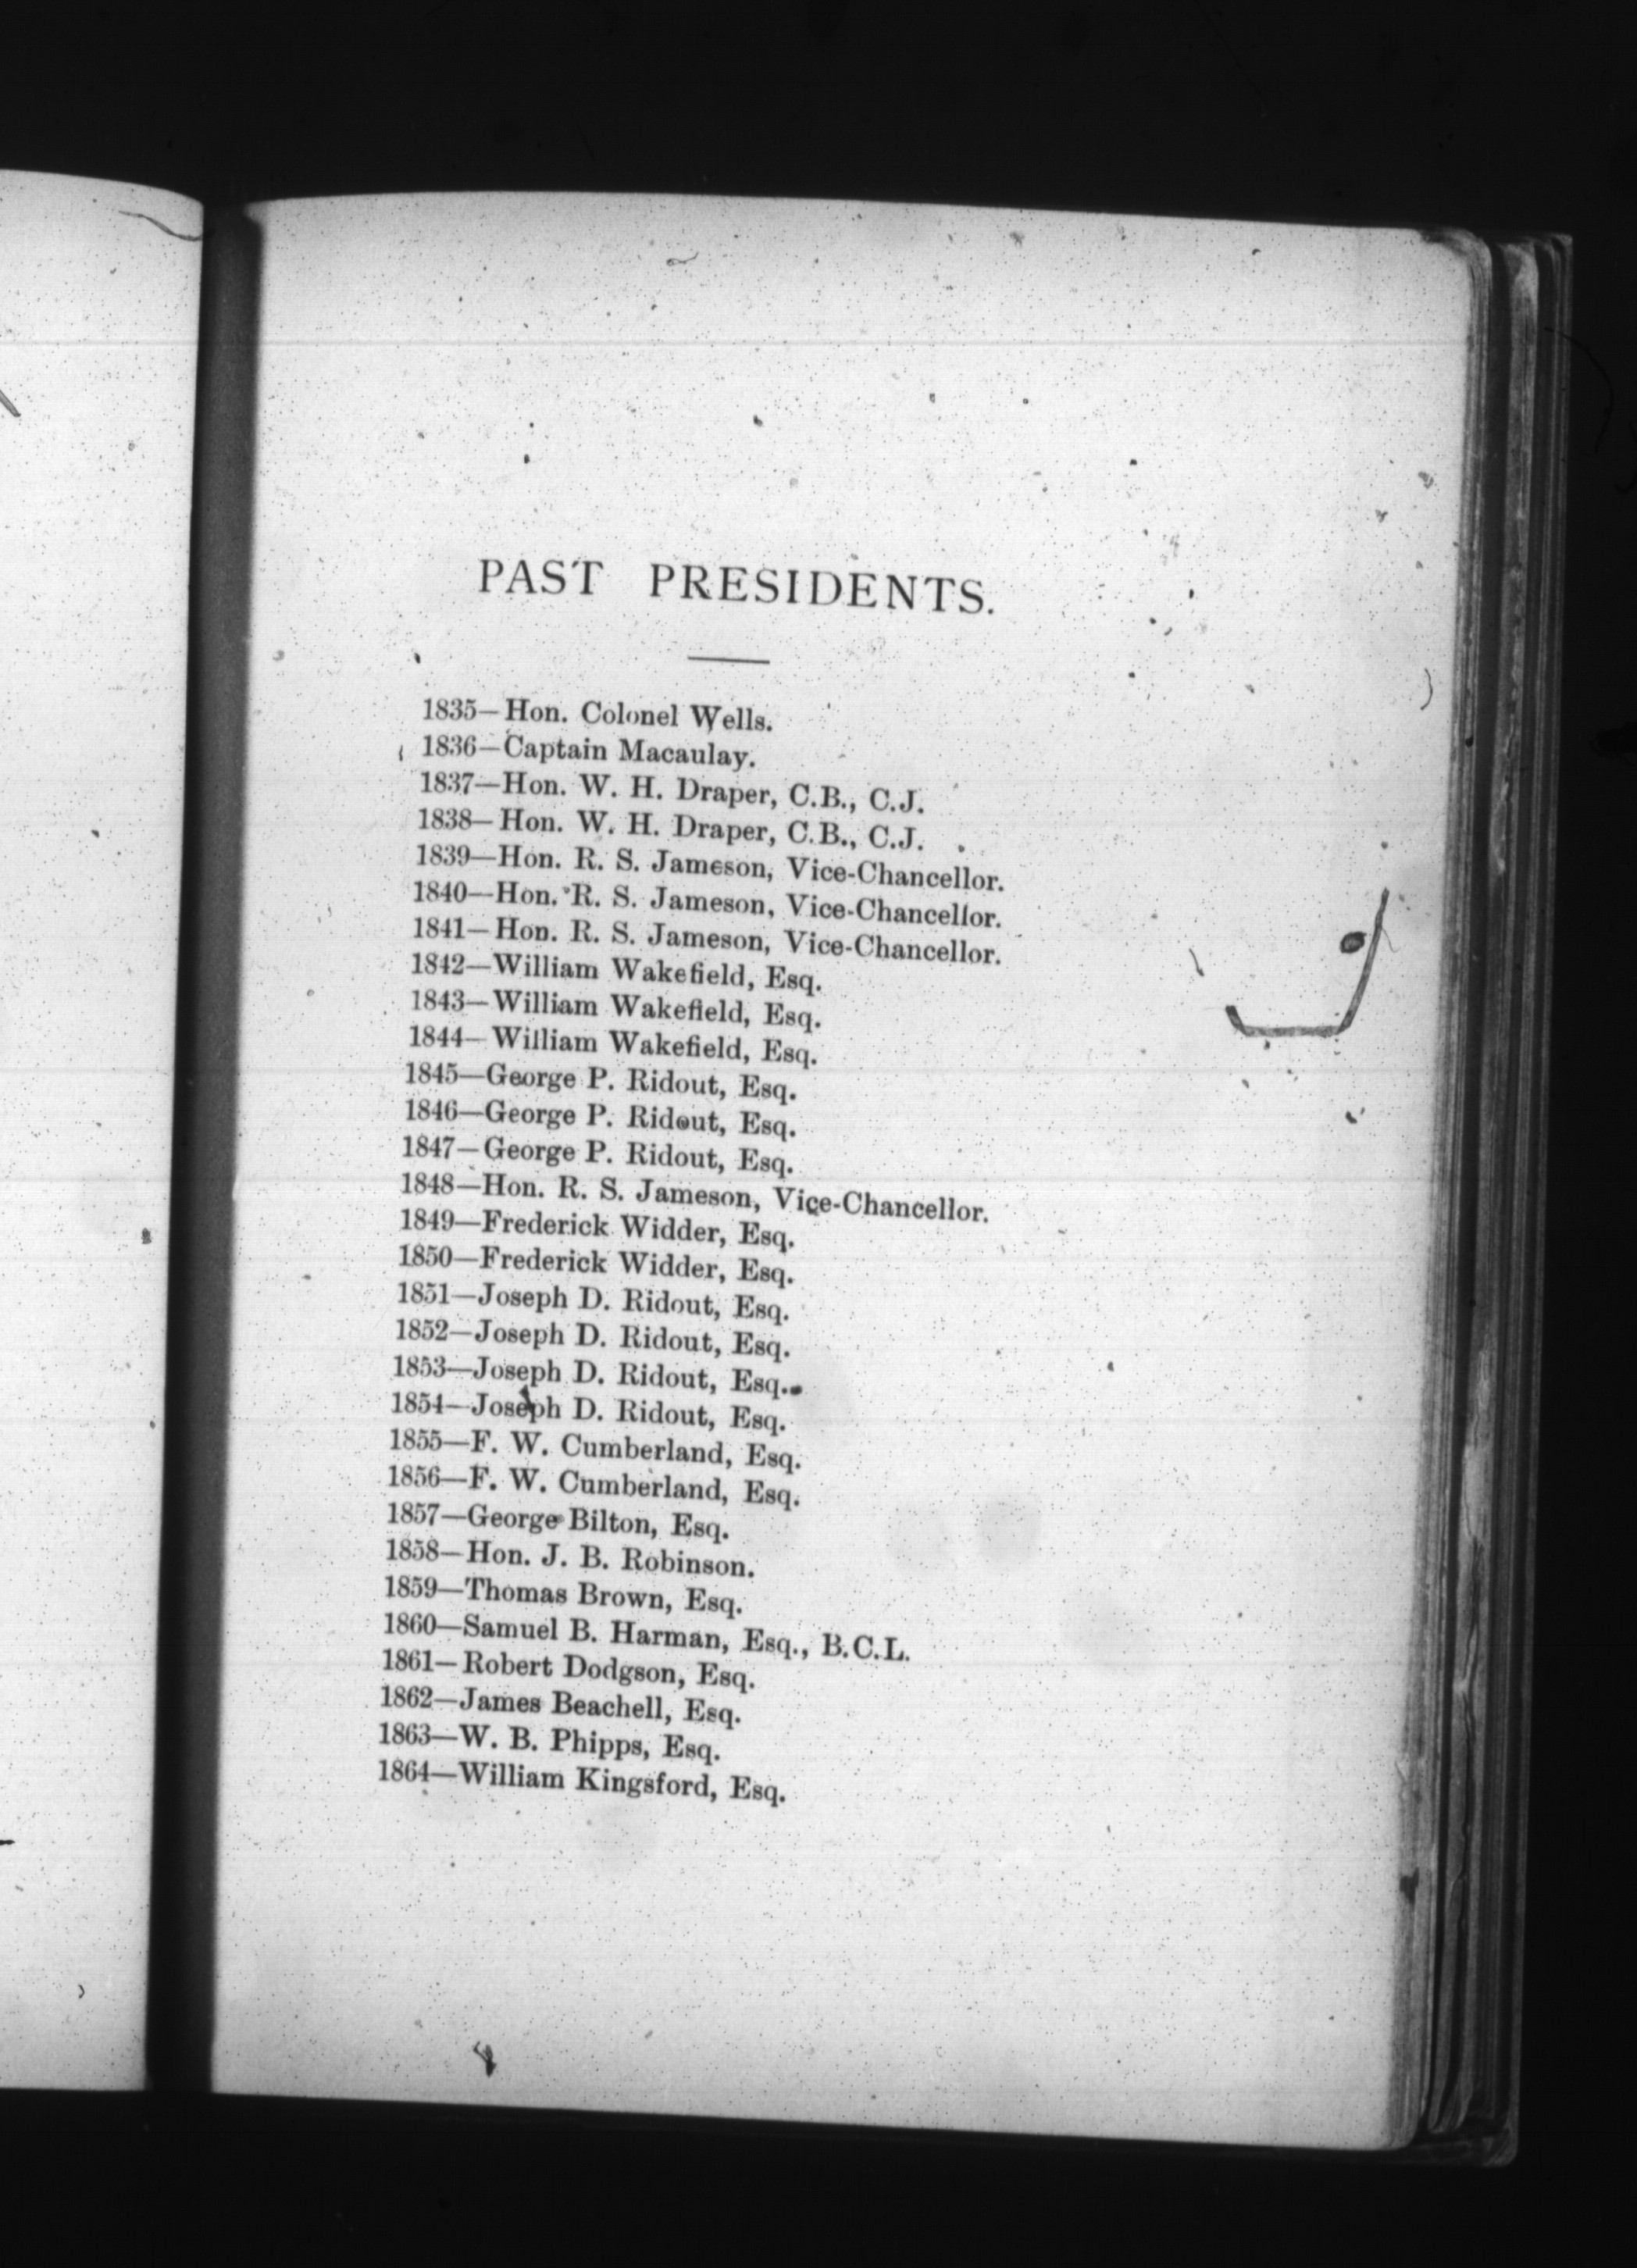 PAST PRESIDENTS.
1835—Hon. Colonel Wells.
1836—Captain Macaulay.
1837—Hon. W. H. Draper, C.B., C.J.
1838—Hon. W. H. Draper, C.B., C.J.
1839—Hon. R. S. Jameson, Vice-Chancellor.
1840—Hon. R. S. Jameson, Vice-Chancellor.
1841—Hon. R. S. Jameson, Vice-Chancellor.
1842—William Wakefield, Esq.
1843—William Wakefield, Esq.
1844—William Wakefield, Esq.
1845—George P. Ridout, Esq.
1846—George P. Ridout, Esq.
1847—George P. Ridout, Esq.
1848—Hon. R. S. Jameson, Vice-Chancellor.
1849—Frederick Widder, Esq.
1850—Frederick Widder, Esq.
1851—Joseph D. Ridout, Esq.
1852—Joseph D. Ridout, Esq.
1853—Joseph D. Ridout, Esq.
1854—Joseph D. Ridout, Esq.
1855—F. W. Cumberland, Esq.
1856—F. W. Cumberland, Esq.
1857—George Bilton, Esq.
1858—Hon. J. B. Robinson.
1859—Thomas Brown, Esq.
1860—Samuel B. Harman, Esq., B.C.L.
1861—Robert Dodgson, Esq.
1862—James Beachell, Esq.
1863—W. B. Phipps, Esq.
1864—William Kingsford, Esq.